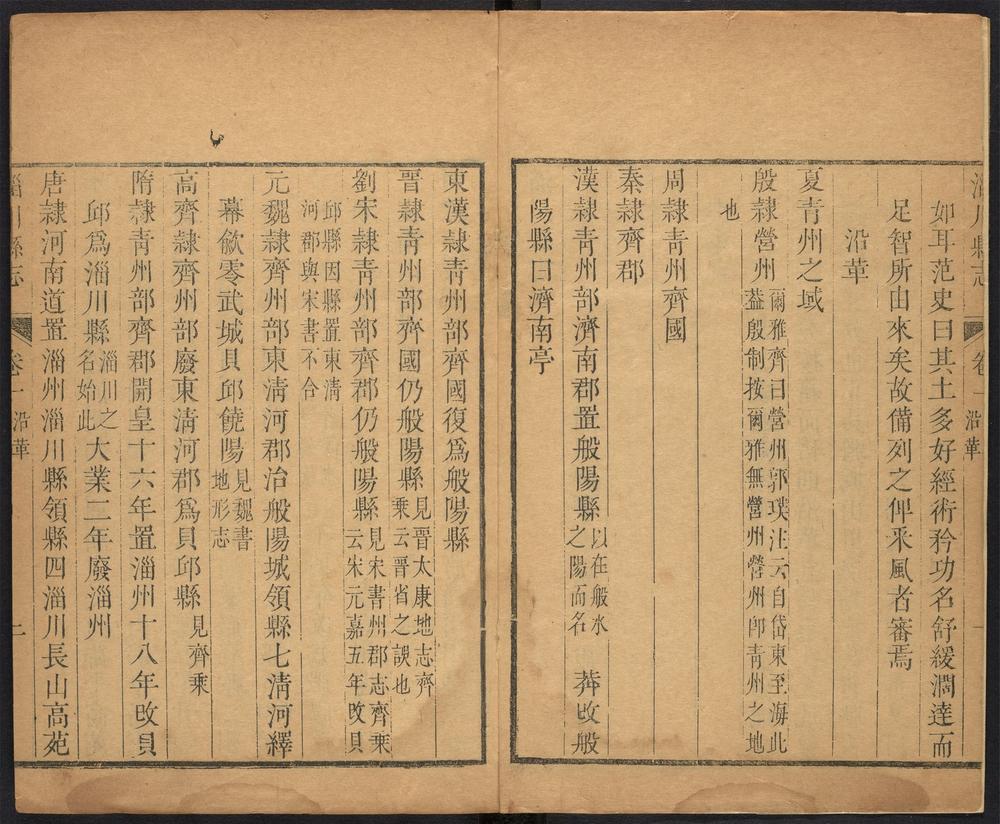 淄川縣志 卷一 沿革 一
如耳范史曰其土多好經術矜功名舒緩濶達而
足智所由來矣故備列之俾釆風者審焉
沿革
夏青州之域
殷隸營州爾雅齊曰營州郭璞注云自岱東至海此
葢殷制按爾雅無營州營州卽青州之地
也
周隸青州齊國
秦隸齊郡
漢隸青州部濟南郡置般陽縣以在般水
之陽而名莽改般
陽縣曰濟南亭
東漢隸青州部齊國復爲般陽縣
晉隸青州部齊國仍般陽縣見晉太康地志齊
乗云晉省之誤也
劉宋隸青州部齊郡仍般陽縣見宋書州郡志齊乗
云宋元嘉五年改貝
邱縣因縣置東淸
河郡與宋書不合
元魏隸齊州部東淸河郡治般陽城領縣七淸河繹
幕歈零武城貝邱饒陽見魏書
地形志
高齊隸齊州部廢東淸河郡爲貝邱縣見齊乗
隋隸青州部齊郡開皇十六年置淄州十八年改貝
邱爲淄川縣淄川之
名始此大業二年廢淄州
唐隸河南道置淄州淄川縣領縣四淄川長山高苑
淄川縣志 卷一 沿革 二